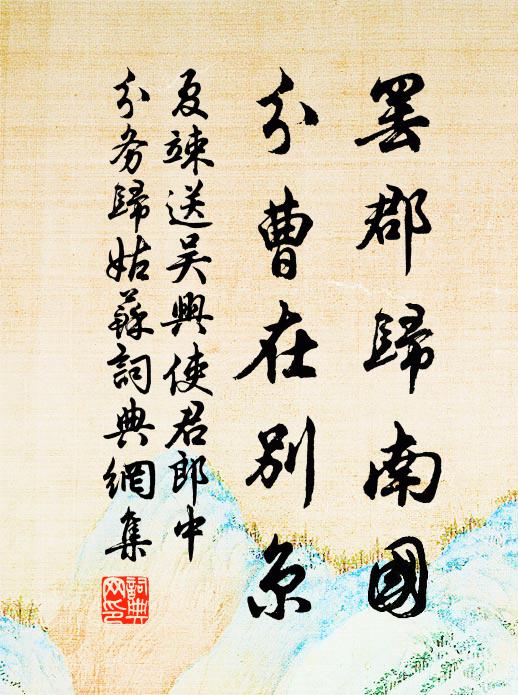 罷郡歸南國
分曹在別京
夏竦送吴興使君郎中
分务歸姑蘇詞典網集
詞典
网印